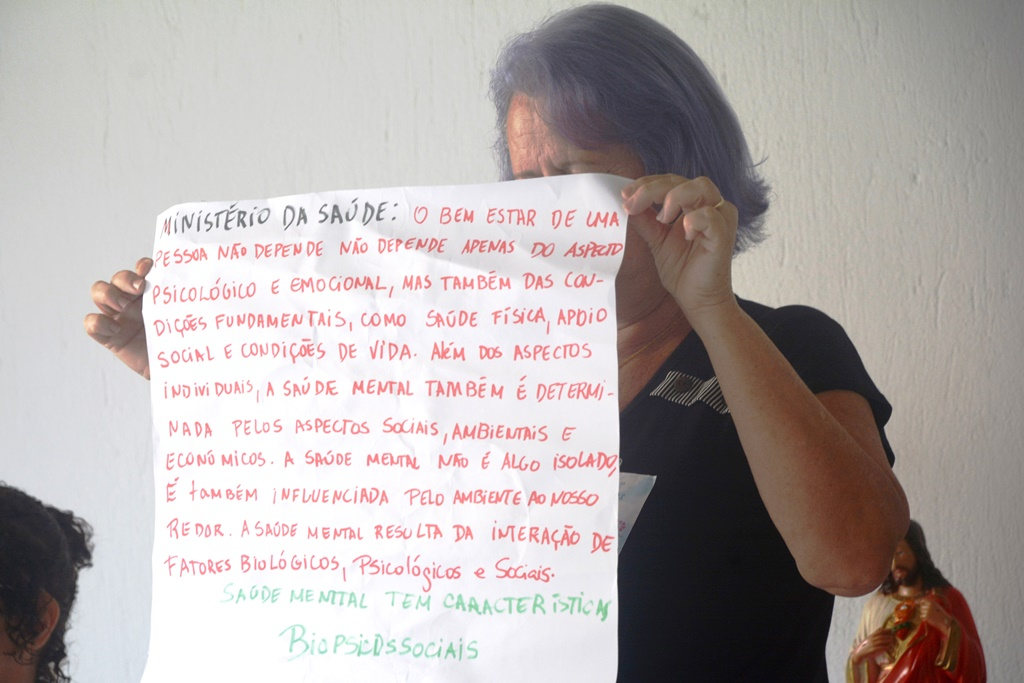 MINISTÉRIO DA SAÚDE: O BEM ESTAR DE UMA
PESSOA NÃO DEPENDE NÃO DEPENDE APENAS DO ASPECTO
PSICOLÓGICO E EMOCIONAL, MAS TAMBÉM DAS CON-
DIÇÕES FUNDAMENTAIS, COMO SAÚDE FÍSICA, APOIO
SOCIAL E CONDIÇÕES DE VIDA. ALÉM DOS ASPECTOS
INDIVIDUAIS, A SAÚDE MENTAL TAMBÉM É DETERMI-
NADA PELOS ASPECTOS SOCIAIS, AMBIENTAIS E
ECONÔMICOS. A SAÚDE MENTAL NÃO É ALGO ISOLADO,
É TAMBÉM INFLUENCIADA PELO AMBIENTE AO NOSSO
REDOR. A SAÚDE MENTAL RESULTA DA INTERAÇÃO DE
FATORES BIOLÓGICOS, PSICOLÓGICOS E SOCIAIS.
SAÚDE MENTAL TEM CARACTERÍSTICAS
BIOPSICOSSOCIAIS